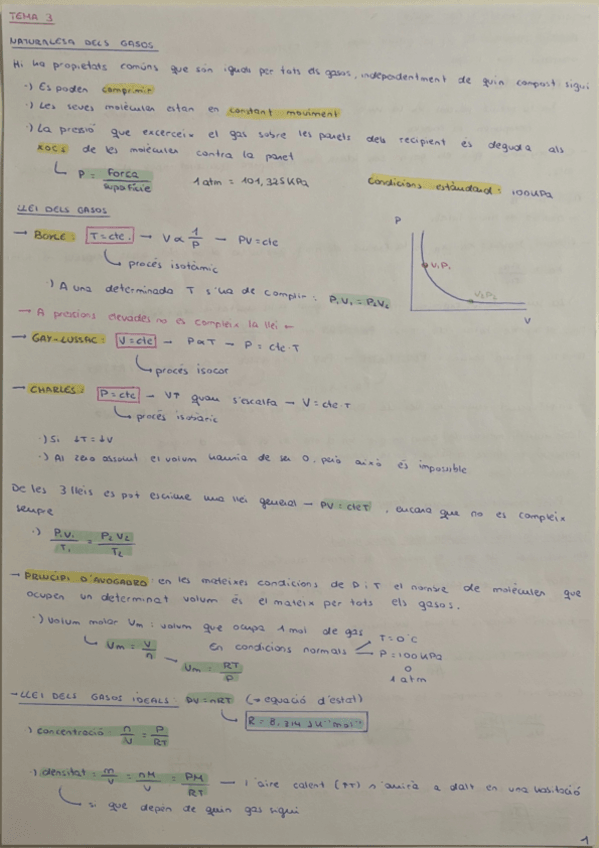 TEMA 3
NATURALESA DELS GASOS
Hi ha propietats comúns que són iguals per tots els gasos, independentment de quin compost sigui
·) Es poden comprimir
·) Les seves molècules estan en constant moviment
·) La pressió que excerceix el gas sobre les parets dels recipient és deguda als
xocs de les molècules contra la paret
P = Força / Superfície   1 atm = 101,325 kPa   Condicions estàndard: 100 kPa
LLEI DELS GASOS
→ BOYLE: T = cte. → V ∝ 1/P → PV = cte
procés isotèrmic
·) A una determinada T s'ha de complir: P₁V₁ = P₂V₂
P
V₁P₁
V₂P₂
V
→ A pressions elevades no es compleix la llei ←
→ GAY-LUSSAC: V = cte → P ∝ T → P = cte·T
procés isocor
→ CHARLES: P = cte → V↑ quan s'escalfa → V = cte·T
procés isobàric
·) Si ↓T = ↓V
·) Al zero absolut el volum hauria de ser 0, però això és impossible
De les 3 lleis es pot escriure una llei general → PV = cteT, encara que no es compleix
sempre
·) P₁V₁ / T₁ = P₂V₂ / T₂
→ PRINCIPI D'AVOGADRO: en les mateixes condicions de P i T el nombre de molècules que
ocupen un determinat volum és el mateix per tots els gasos.
·) Volum molar Vm: volum que ocupa 1 mol de gas
Vm = V/n → Vm = RT/P   En condicions normals
T = 0°C
P = 100 kPa
o
1 atm
→ LLEI DELS GASOS IDEALS: PV = nRT (→ equació d'estat)
R = 8,314 JK⁻¹mol⁻¹
·) concentració: n/V = P/RT
·) densitat = m/V = nM/V = PM/RT — l'aire calent (↑T) s'anirà a dalt en una habitació
si que depèn de quin gas sigui
1